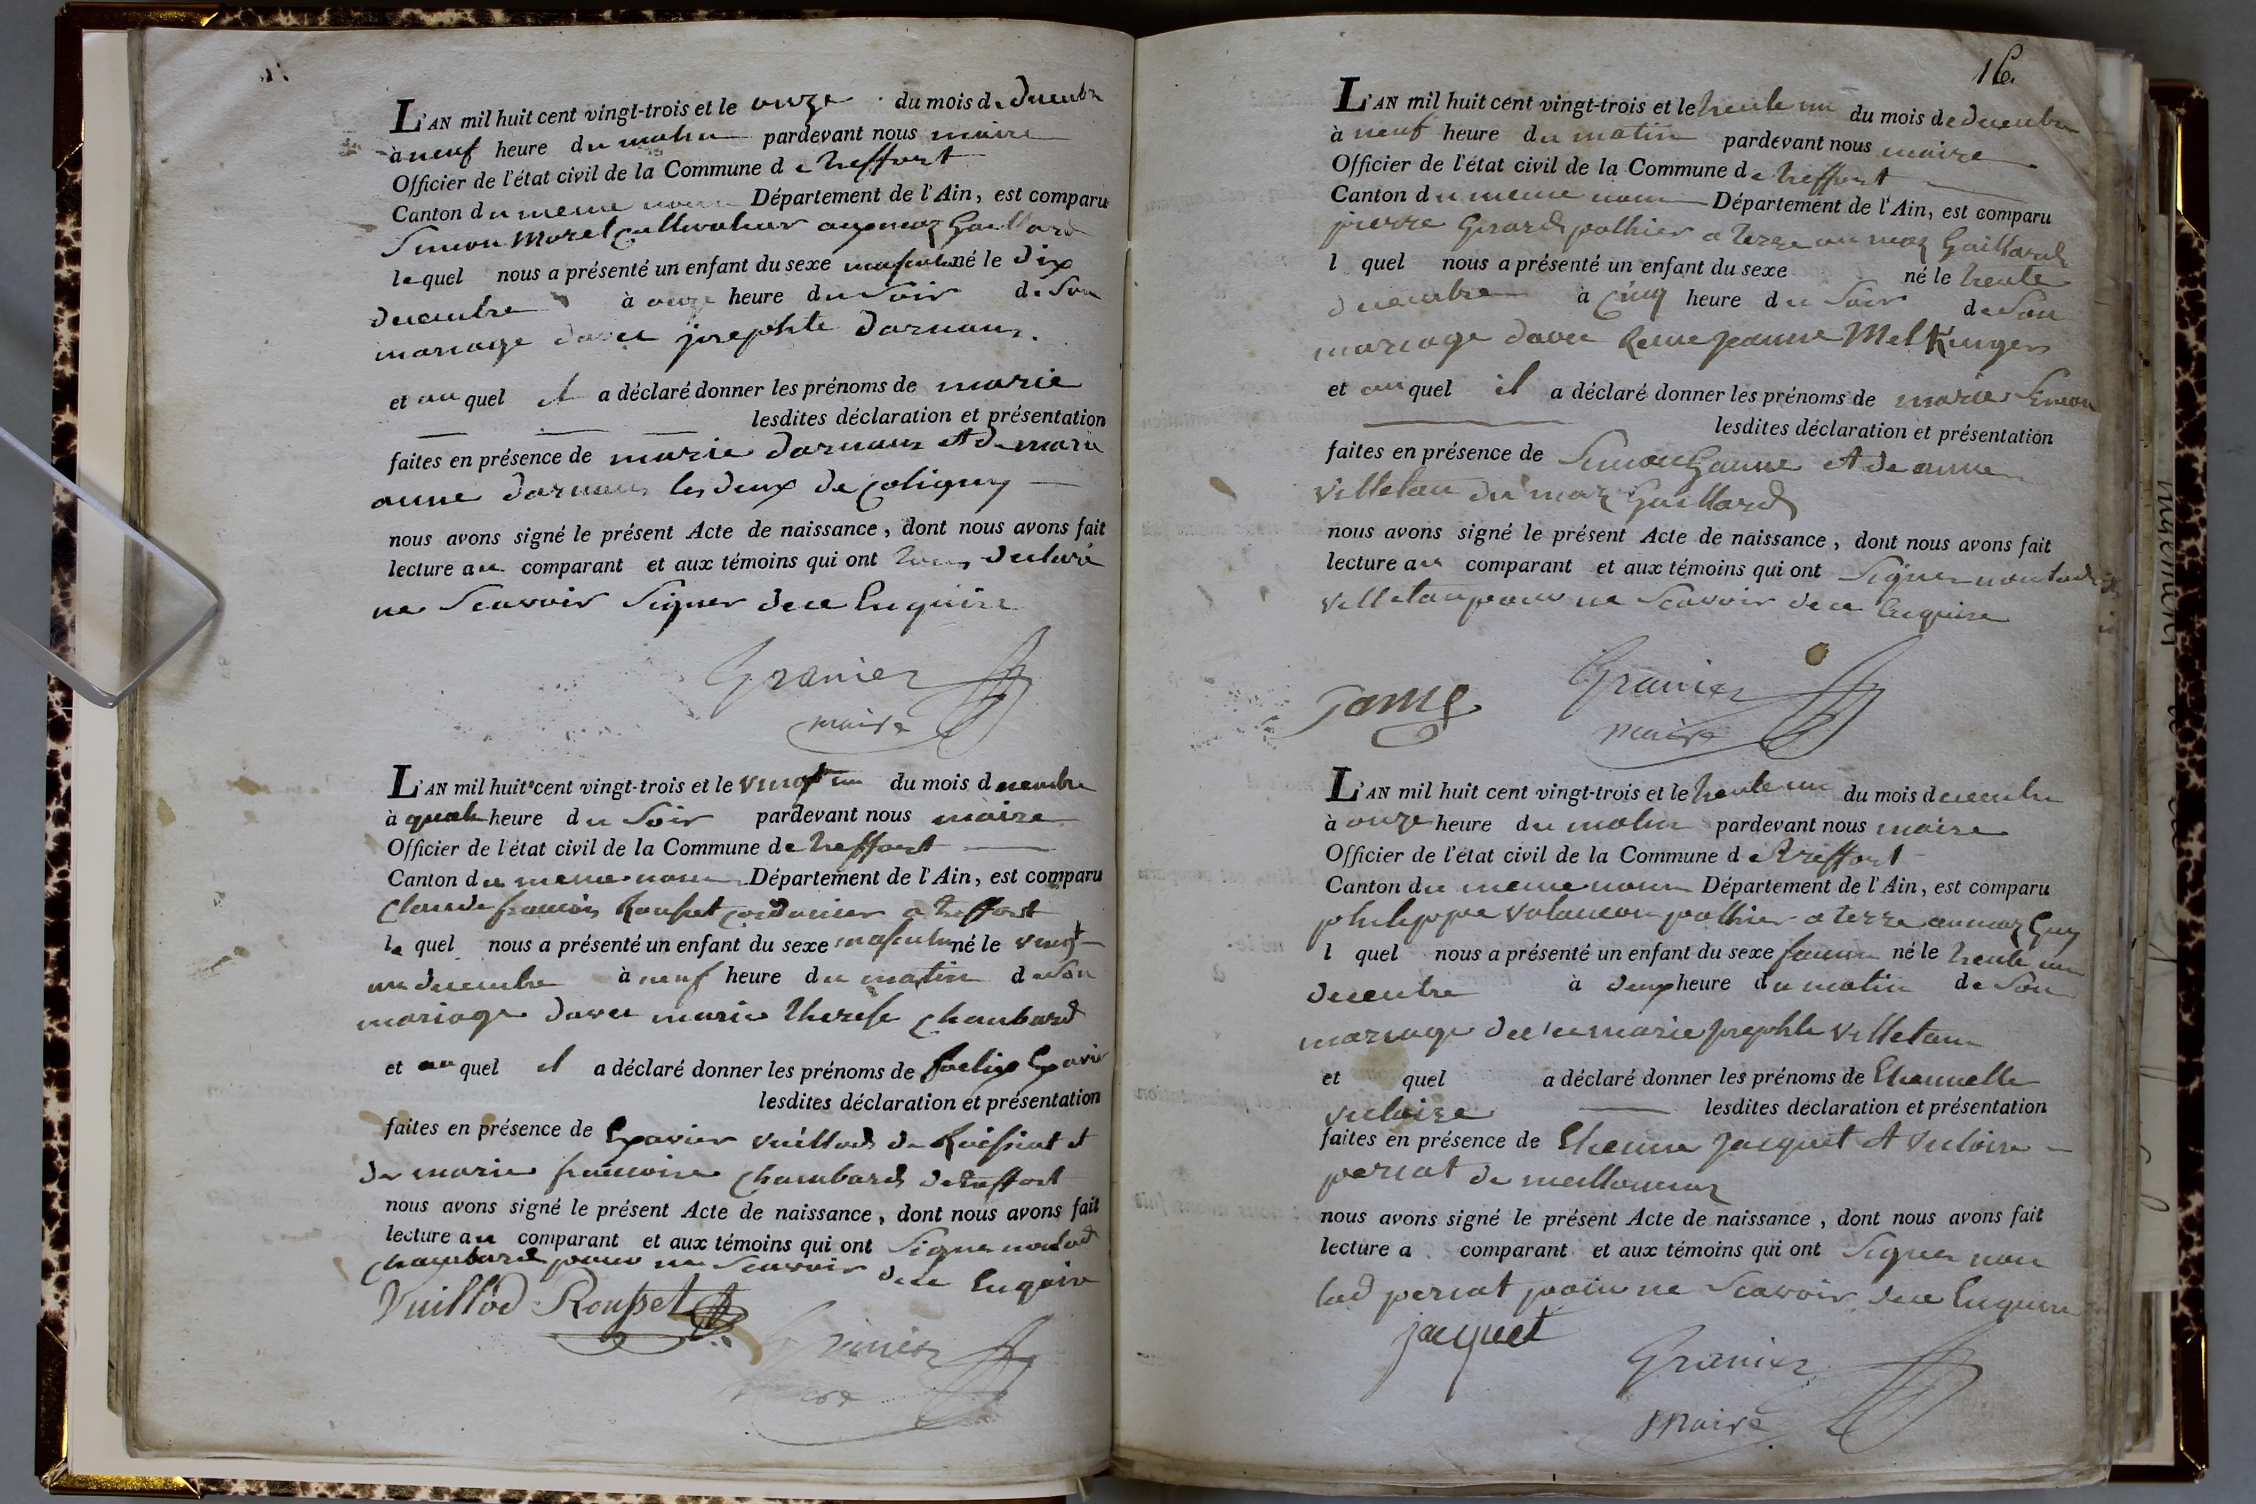 L'AN mil huit cent vingt-trois et le onze du mois de decembre
à neuf heure du matin pardevant nous maire
Officier de l'état civil de la Commune de treffort
Canton du meme nom Département de l'Ain, est comparu
Simon Morel Cultivateur au maz Gaillard
lequel nous a présenté un enfant du sexe masculin né le dix
decembre à onze heure du soir de son
mariage davec josephte darnaux
et auquel il a déclaré donner les prénoms de marie
lesdites déclaration et présentation
faites en présence de marie darnaux et de marie
anne darnaux les deux de Coligny
nous avons signé le présent Acte de naissance, dont nous avons fait
lecture au comparant et aux témoins qui ont tous declaré
ne Scavoir Signer de ce Enquire
Granier
maire
L'AN mil huit cent vingt-trois et le vingt un du mois decembre
à quatre heure du Soir pardevant nous maire
Officier de l'état civil de la Commune de treffort
Canton du meme nom Département de l'Ain, est comparu
Claude francois Rousset Cordonier a treffort
le quel nous a présenté un enfant du sexe masculin né le vingt
un decembre à neuf heure du matin de Son
mariage davec marie therese Chambard
et auquel il a déclaré donner les prénoms de faelix Exavier
lesdites déclaration et présentation
faites en présence de Exavier Vuillod de Roissiat et
de marie francoise Chambard de treffort
nous avons signé le présent Acte de naissance, dont nous avons fait
lecture au comparant et aux témoins qui ont Signer non lad
Chambard pour ne Scavoir de ce Enquire
Vuillod Rousset
Granier
maire
16.
L'AN mil huit cent vingt-trois et le trente un du mois de decembre
à neuf heure du matin pardevant nous maire
Officier de l'état civil de la Commune de treffort
Canton du meme nom Département de l'Ain, est comparu
pierre Girard pothier a terre au maz Gaillard
l quel nous a présenté un enfant du sexe né le trente
decembre à Cinq heure du Soir de Son
mariage davec Reine jeanne Mel Kingers
et auquel il a déclaré donner les prénoms de marie Simon
lesdites déclaration et présentation
faites en présence de Simon Ganne et de anne
Villetan du maz Gaillard
nous avons signé le présent Acte de naissance, dont nous avons fait
lecture au comparant et aux témoins qui ont Signer non lad
Villetan pour ne Scavoir de ce Enquire
Granier
maire
L'AN mil huit cent vingt-trois et le trente un du mois decembre
à onze heure du matin pardevant nous maire
Officier de l'état civil de la Commune de treffort
Canton du meme nom Département de l'Ain, est comparu
philippe Volancon pothier a terre au maz Guy
l quel nous a présenté un enfant du sexe feminin né le trente un
decembre à deux heure du matin de Son
mariage de marie josephte Villetan
et quel a déclaré donner les prénoms de Etiennette
Victoire lesdites déclaration et présentation
faites en présence de Etienne Jacquet et Victoire
periat de meillonnaz
nous avons signé le présent Acte de naissance, dont nous avons fait
lecture a comparant et aux témoins qui ont Signer non
lad periat pour ne Scavoir de ce Enquire
jacquet
Granier
maire